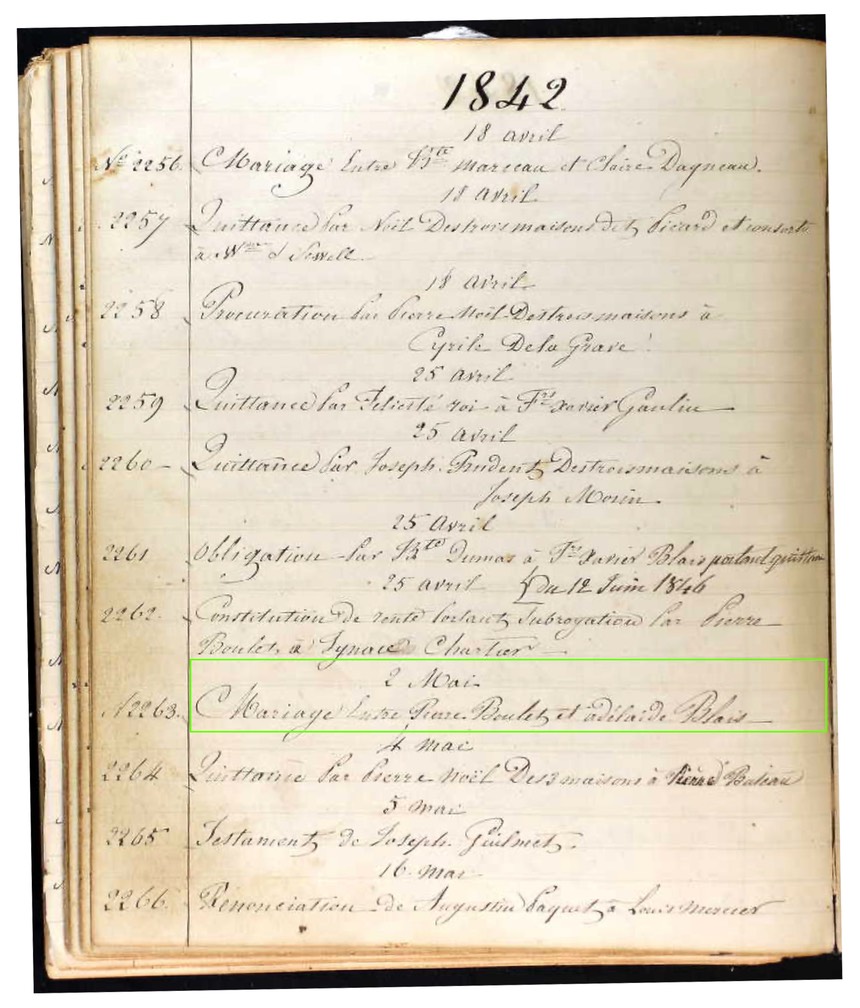 1842
18 avril
No 2256. Mariage Entre Bte marceau et Claire Dagneau.
18 avril
2257 Quittance Par Noël Destroismaisons dit Picard et consorts
à Wm S Sewell
18 avril
2258 Procuration Par Pierre Noël Destroismaisons à
Cyrile Dela Grave
25 avril
2259 Quittance Par Felicité roi à Frs xavier Gaulin
25 avril
2260 Quittance Par Joseph Prudent Destroismaisons à
Joseph Morin.
25 avril
2261 Obligation Par Bte Dumas à Frs Xavier Blais portant quittance
25 avril du 12 Juin 1846
2262 Constitution de rente Portant Subrogation Par Pierre
Boulet à Ignace Chartier
2 Mai
N 2263. Mariage Entre Pierre Boulet et adélaïde Blais
4 mai
2264 Quittance Par Pierre Noël Des3maisons à Pierre
5 mai
2265 Testament de Joseph Guilmet.
16 mai
2266 Renonciation de Augustin Paquet à Louis mercier